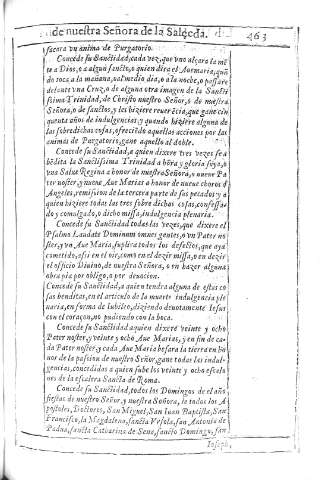 de nuestra Señora de la Salceda. 463
sacara vn anima de Purgatorio.
Concede su Sanctidad, cada vez, que vno alçara la mẽ
te a Dios, o a algun sancto, o quien dira el Auemaria, quã
do toca a la mañana, o al medio dia, o a la noche, o passare
delante vna Cruz, o de alguna otra imagen de la Sancti
ssima Trinidad, de Christo nuestro Señor, o de nuestra
Señora, o de sanctos, y les hiziere reuerẽcia, que gane cin
quenta años de indulgencias: y quando hiziere alguna de
las sobredichas cosas, ofreciẽdo aquellas acciones por las
animas de Purgatorio, gane aquello al doble.
Concede su Sanctidad, a quien dixere tres vezes sea
bẽdita la Sanctissima Trinidad a hõra y gloria suya, o
vna Salue Regina a honor de nuestra Señora, o nueue Pa
ter noster, y nueue Aue Marias a honor de nueue choros d
Angeles, remission de la tercera parte de sus pecados: y a
quien hiziere todas las tres sobre dichas cosas, confessa-
do y comulgado, o dicho missa, indulgencia plenaria.
Concede su Sanctidad todas las vezes, que dixere el
Psalmo Laudate Dominum omnes gentes, o vn Pater no
ster, y vn Aue Maria, suplira todos los defectos, que aya
cometido, assi en el oir, como en el dezir missa, o en dezir
el officio Diuino, de nuestra Señora, o en hazer alguna
obra pia por obligo, o por deuocion.
Concede su Sanctidad, a quien tendra alguna de estas co
sas benditas, en el articulo de la muerte indulgencia ple
naria, en forma de Iubileo, diziendo deuotamente Iesus
con el coraçon, no pudiendo con la boca.
Concede su Sanctidad a quien dixere veinte y ocho
Pater noster, y veinte y ocho Aue Marias, y en fin de ca-
da Pater noster, y cada Aue Maria besara la tierra en hõ
nor de la passion de nuestro Señor, gane todas las indul-
gencias, concedidas a quien sube los veinte y ocho escalo
nes de la escalera Sancta de Roma.
Concede su Sanctidad, todos los Domingos de el año,
fiestas de nuestro Señor, y nuestra Señora, de todos los A
postoles, Doctores, San Miguel, San Iuan Baptista, San
Francisco, la Magdalena, sancta Vrsola, san Antonio de
Padua, sancta Catharina de Sena, sancto Domingo, san
Ioseph,